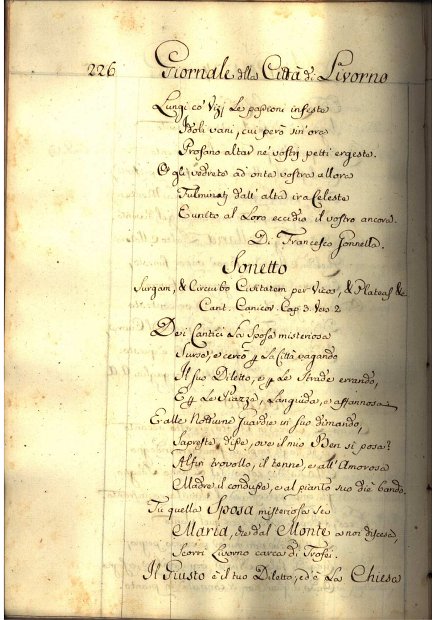 226 Giornale della Città di Livorno
Lungi co' Vizj le passioni infeste
Idoli vani, cui però sin' ora
Profano altar ne' vostri petti ergeste.
O gli vedrete ad onta vostra allora
Fulminati dall' alta ira Celeste
E unito al Loro eccidio il vostro ancora.
Di Francesco Gonnella.
Sonetto
Surgam, & Circuibo Civitatem per Vicos, & Plateas &c
Cant. Canticor. Cap. 3. Vers. 2
Dei Cantici La Sposa misteriosa
Surse, e cercò p La Città vagando
Il suo Diletto, e p Le Strade errando,
E p Le Piazze, Languida, e affannosa
E alle Notturne Guardie in suo dimando,
Sapreste, disse, ove il mio Ben si posa?
Alfin trovollo, il tenne, e all' Amorosa
Madre il condusse, e al pianto suo diè bando.
Tu quella Sposa misteriosa sei
Maria, che dal Monte a noi discesa,
Scorri Livorno carca di Trofei.
Il Giusto è il tuo Diletto, ed è La Chiesa